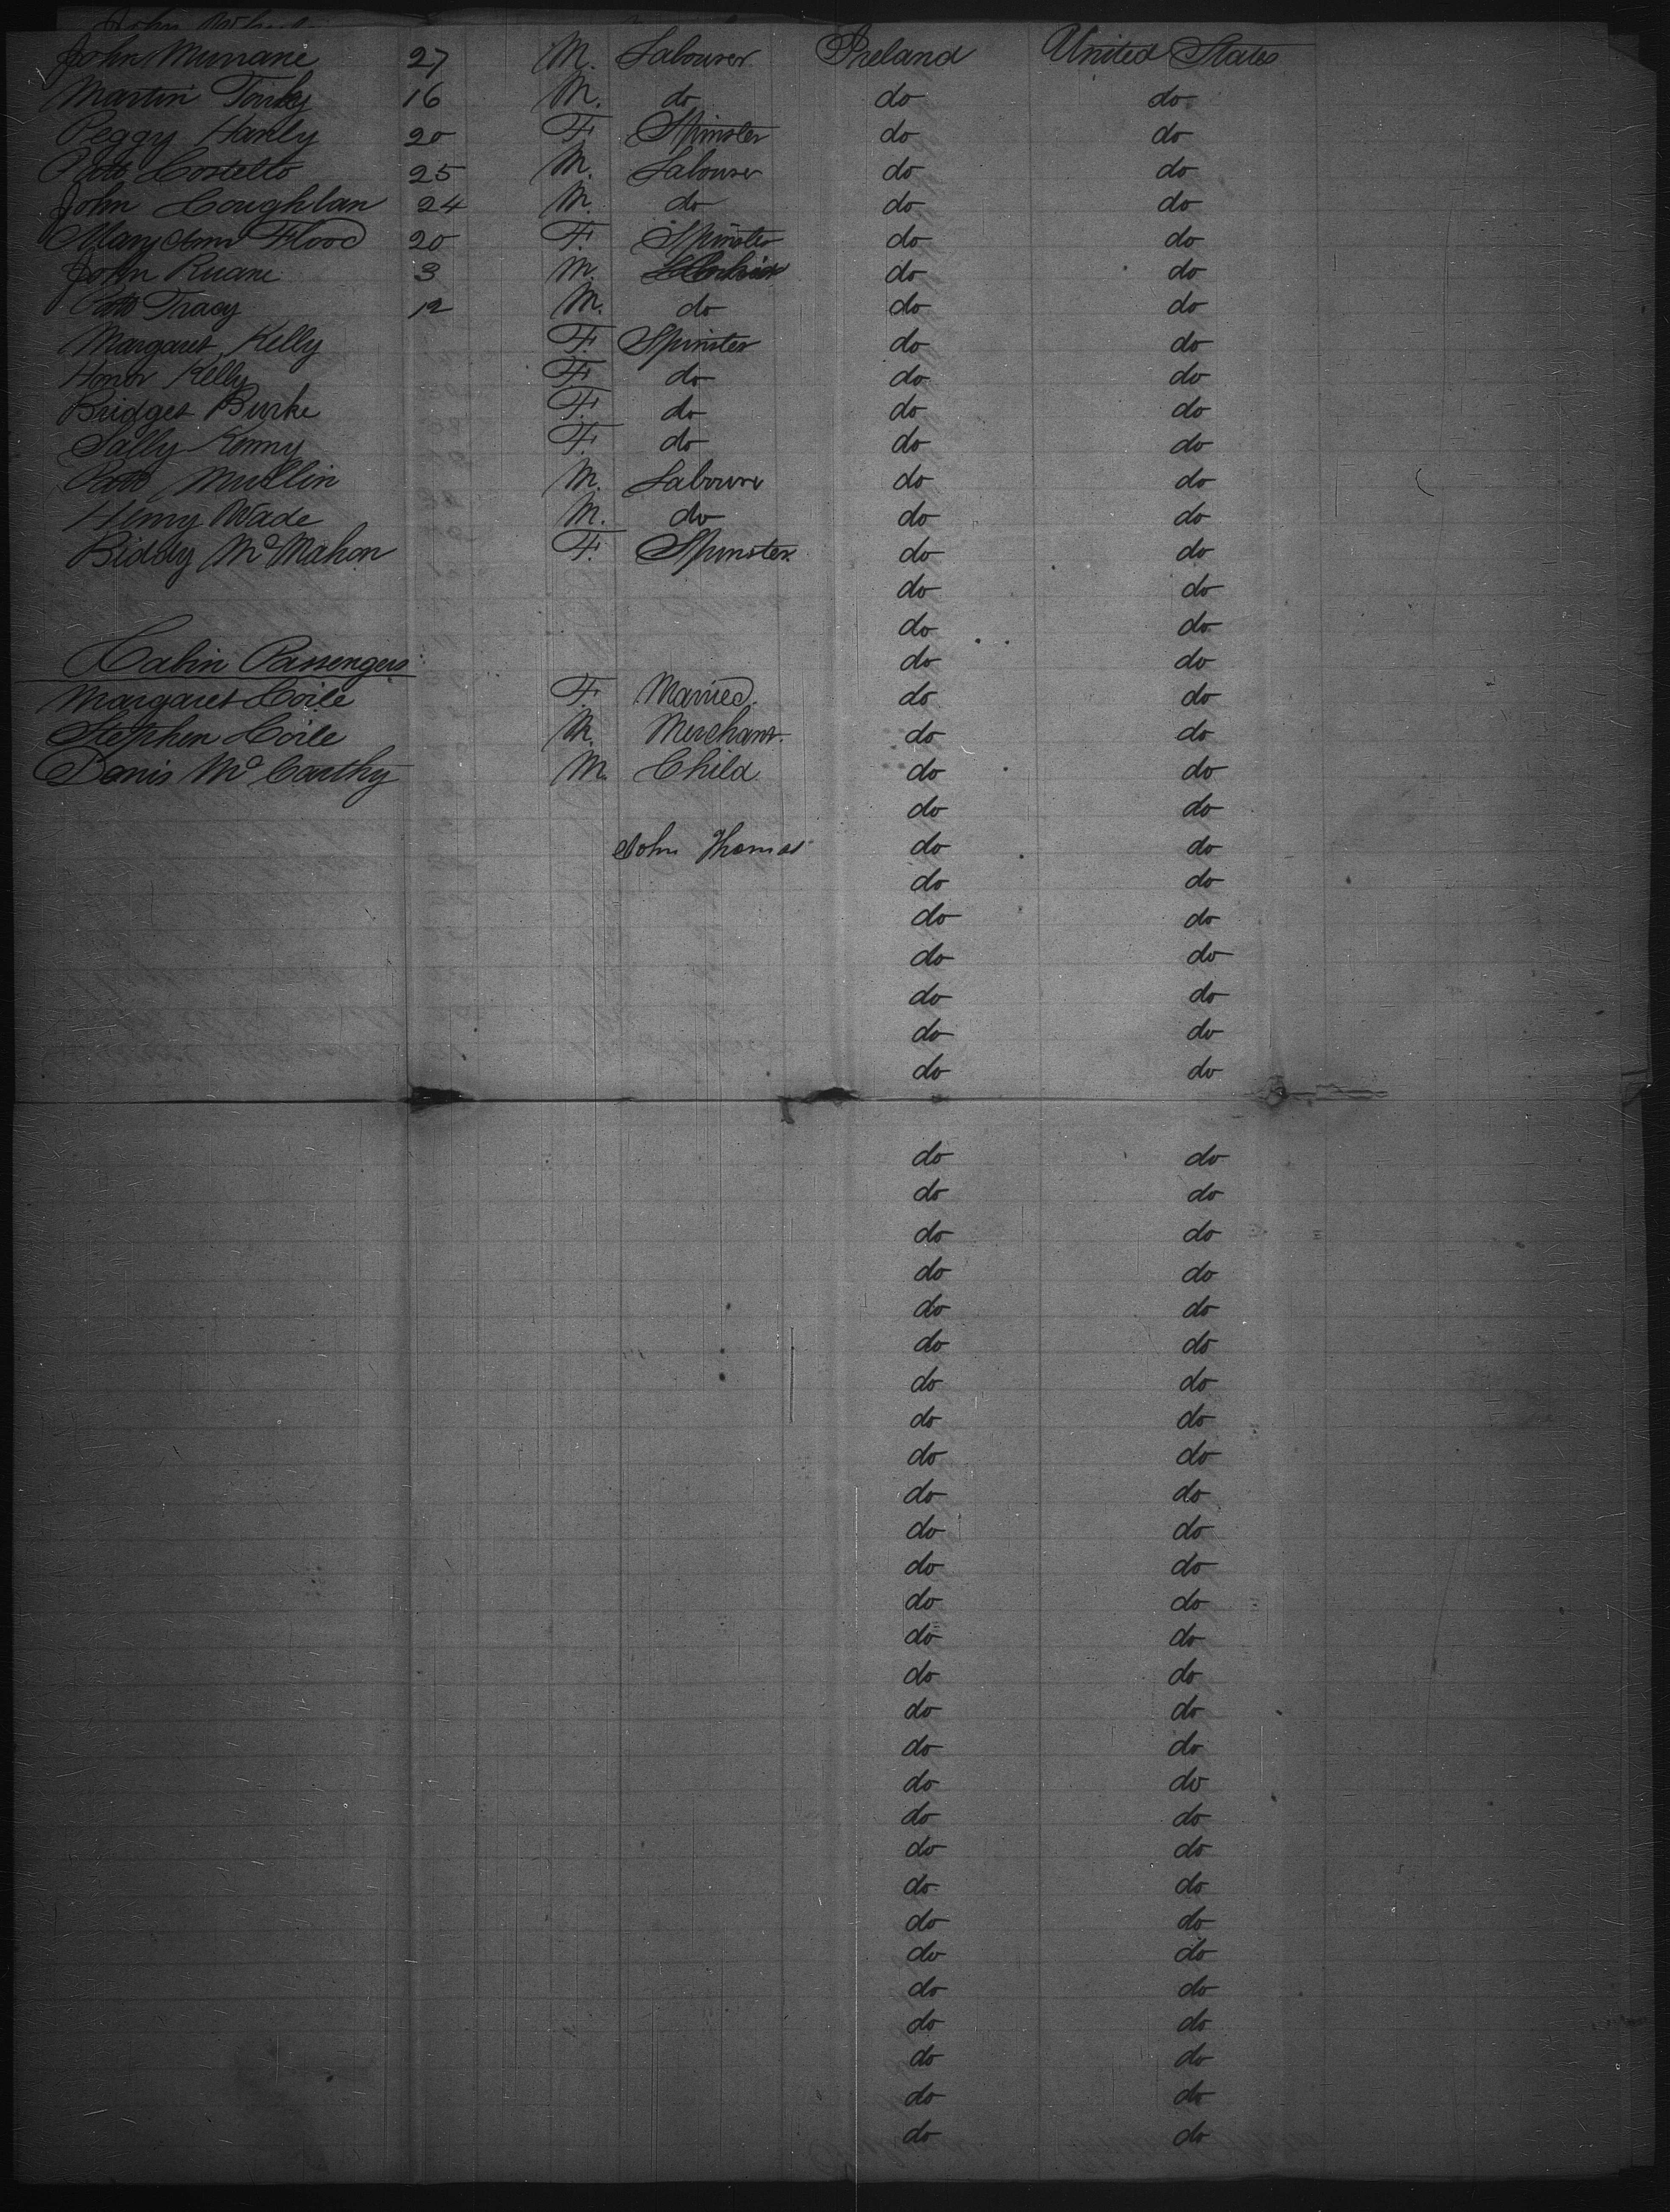 John Murrane 27 M. Labourer Ireland United States
Martin 16 M. do do do
Peggy Hanly 20 F. Spinster do do
Patt Costello 25 M. Labourer do do
John Coughlan 24 M. do do do
Mary Ann Flood 20 F. Spinster do do
John Ruane 3 M. do do
Patt Tracy 12 M. do do do
Margaret Kelly F. Spinster do do
Honor Kelly F. do do do
Bridget Burke F. do do do
Sally Kenny F. do do do
Patt Mullin M. Labourer do do
Henry Wade M. do do do
Biddy McMahon F. Spinster do do
do do
do do
Cabin Passengers do do
Margaret Coile F. Married. do do
Stephen Coile M. Merchant. do do
Denis McCarthy M. Child do do
do do
John Thomas do do
do do
do do
do do
do do
do do
do do
do do
do do
do do
do do
do do
do do
do do
do do
do do
do do
do do
do do
do do
do do
do do
do do
do do
do do
do do
do do
do do
do do
do do
do do
do do
do do
do do
do do